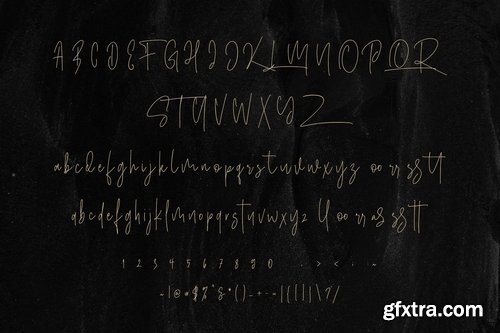 A B C D E F G H I J K L M N O P Q R
S T U V W X Y Z
abcdefghijklmnopqrstuvwxyz oo rr ss tt
abcdefghijklmnopqrstuvwxyz oo rr ss tt
1 2 3 4 5 6 7 8 9 0
gfxtra.com